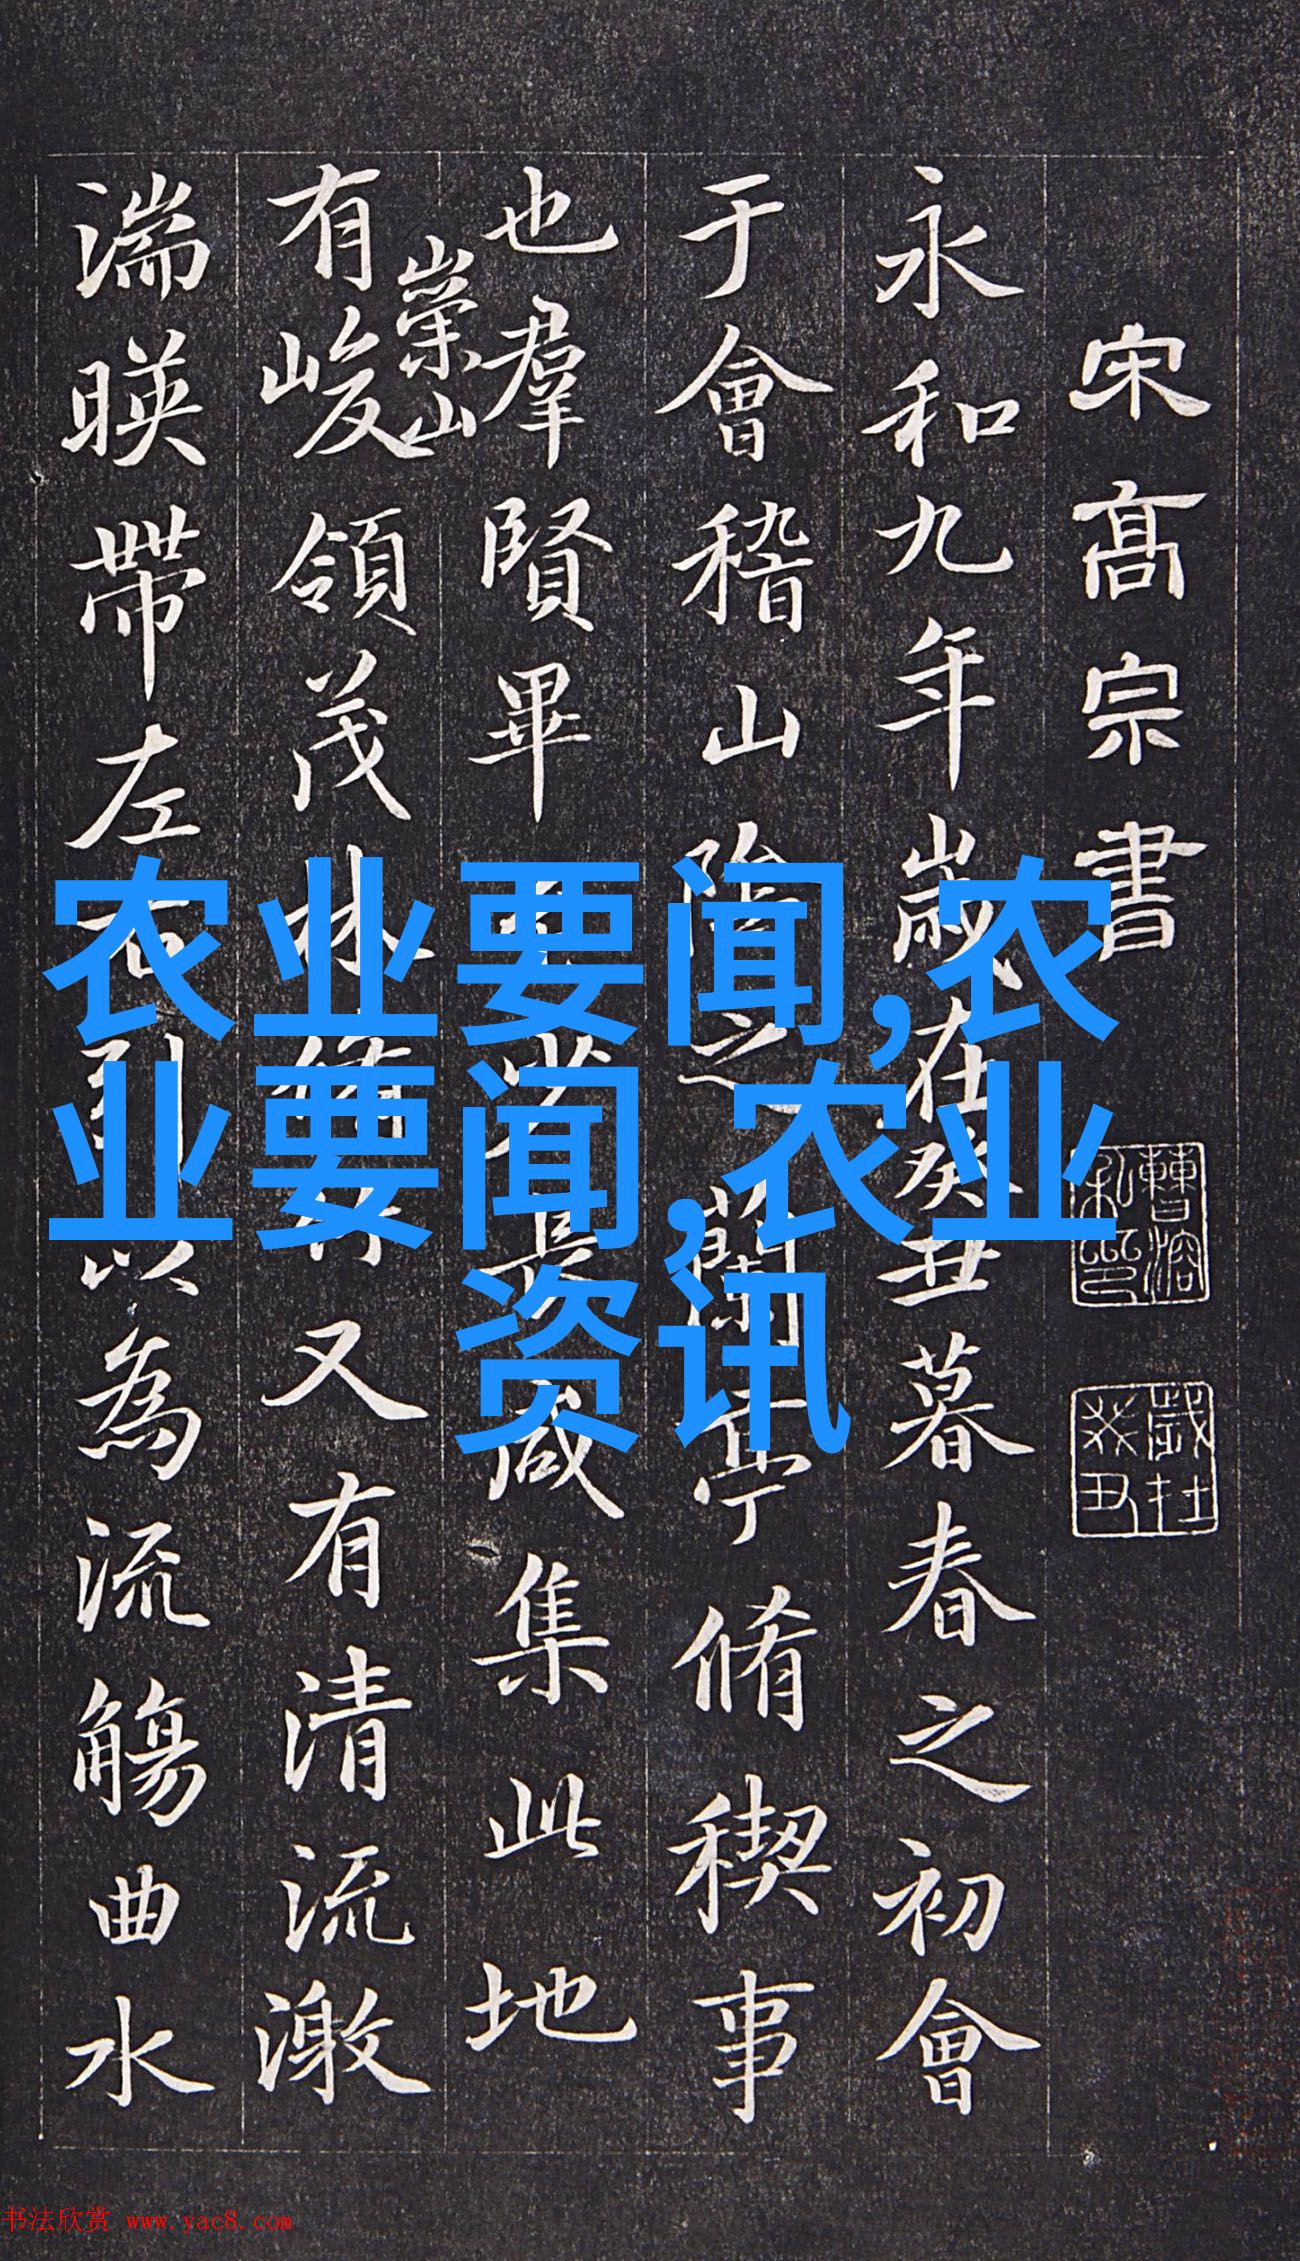 宋高宗書
永和九年歲在癸丑暮春之初會
于會稽山陰之蘭亭脩稧事
也羣賢畢至少長咸集此地
崇山
有峻領茂林脩竹又有清流激
湍暎帶左右引以為流觴曲水
曹溶私印
歲在癸丑
农业要闻,农
业要闻,农业
资讯
书法欣赏 www.yac8.com